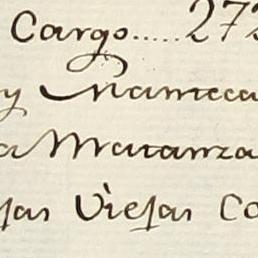 Cargo..... 272
y Manteca
a Matanza
sas Viejas Co